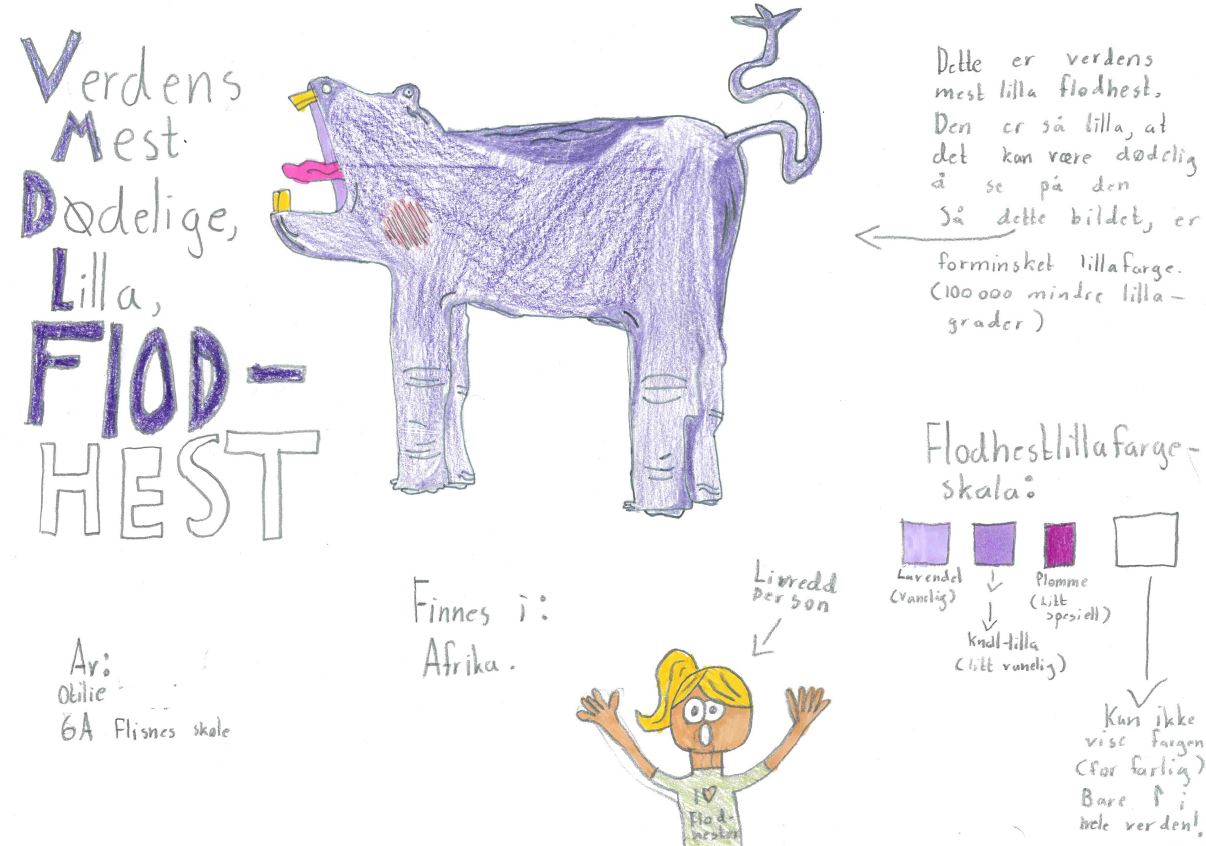 Verdens
Mest
Dødelige,
Lilla,
FlOD-
HEST
Dette er verdens
mest lilla flodhest.
Den er så lilla, at
det kan være dødelig
å se på den
Så dette bildet, er
forminsket lillafarge.
(100 000 mindre lilla-
grader)
Flodhestlillafarge-
skala:
Lavendel
(vanlig)
Knall-lilla
(litt vanlig)
Plomme
(litt
spesiell)
Kan ikke
vise fargen
(for farlig)
Bare 1 i
hele verden!
Finnes i:
Afrika.
Livredd
person
I ♡
Flod-
hester
Av:
Otilie
6A Flisnes skole